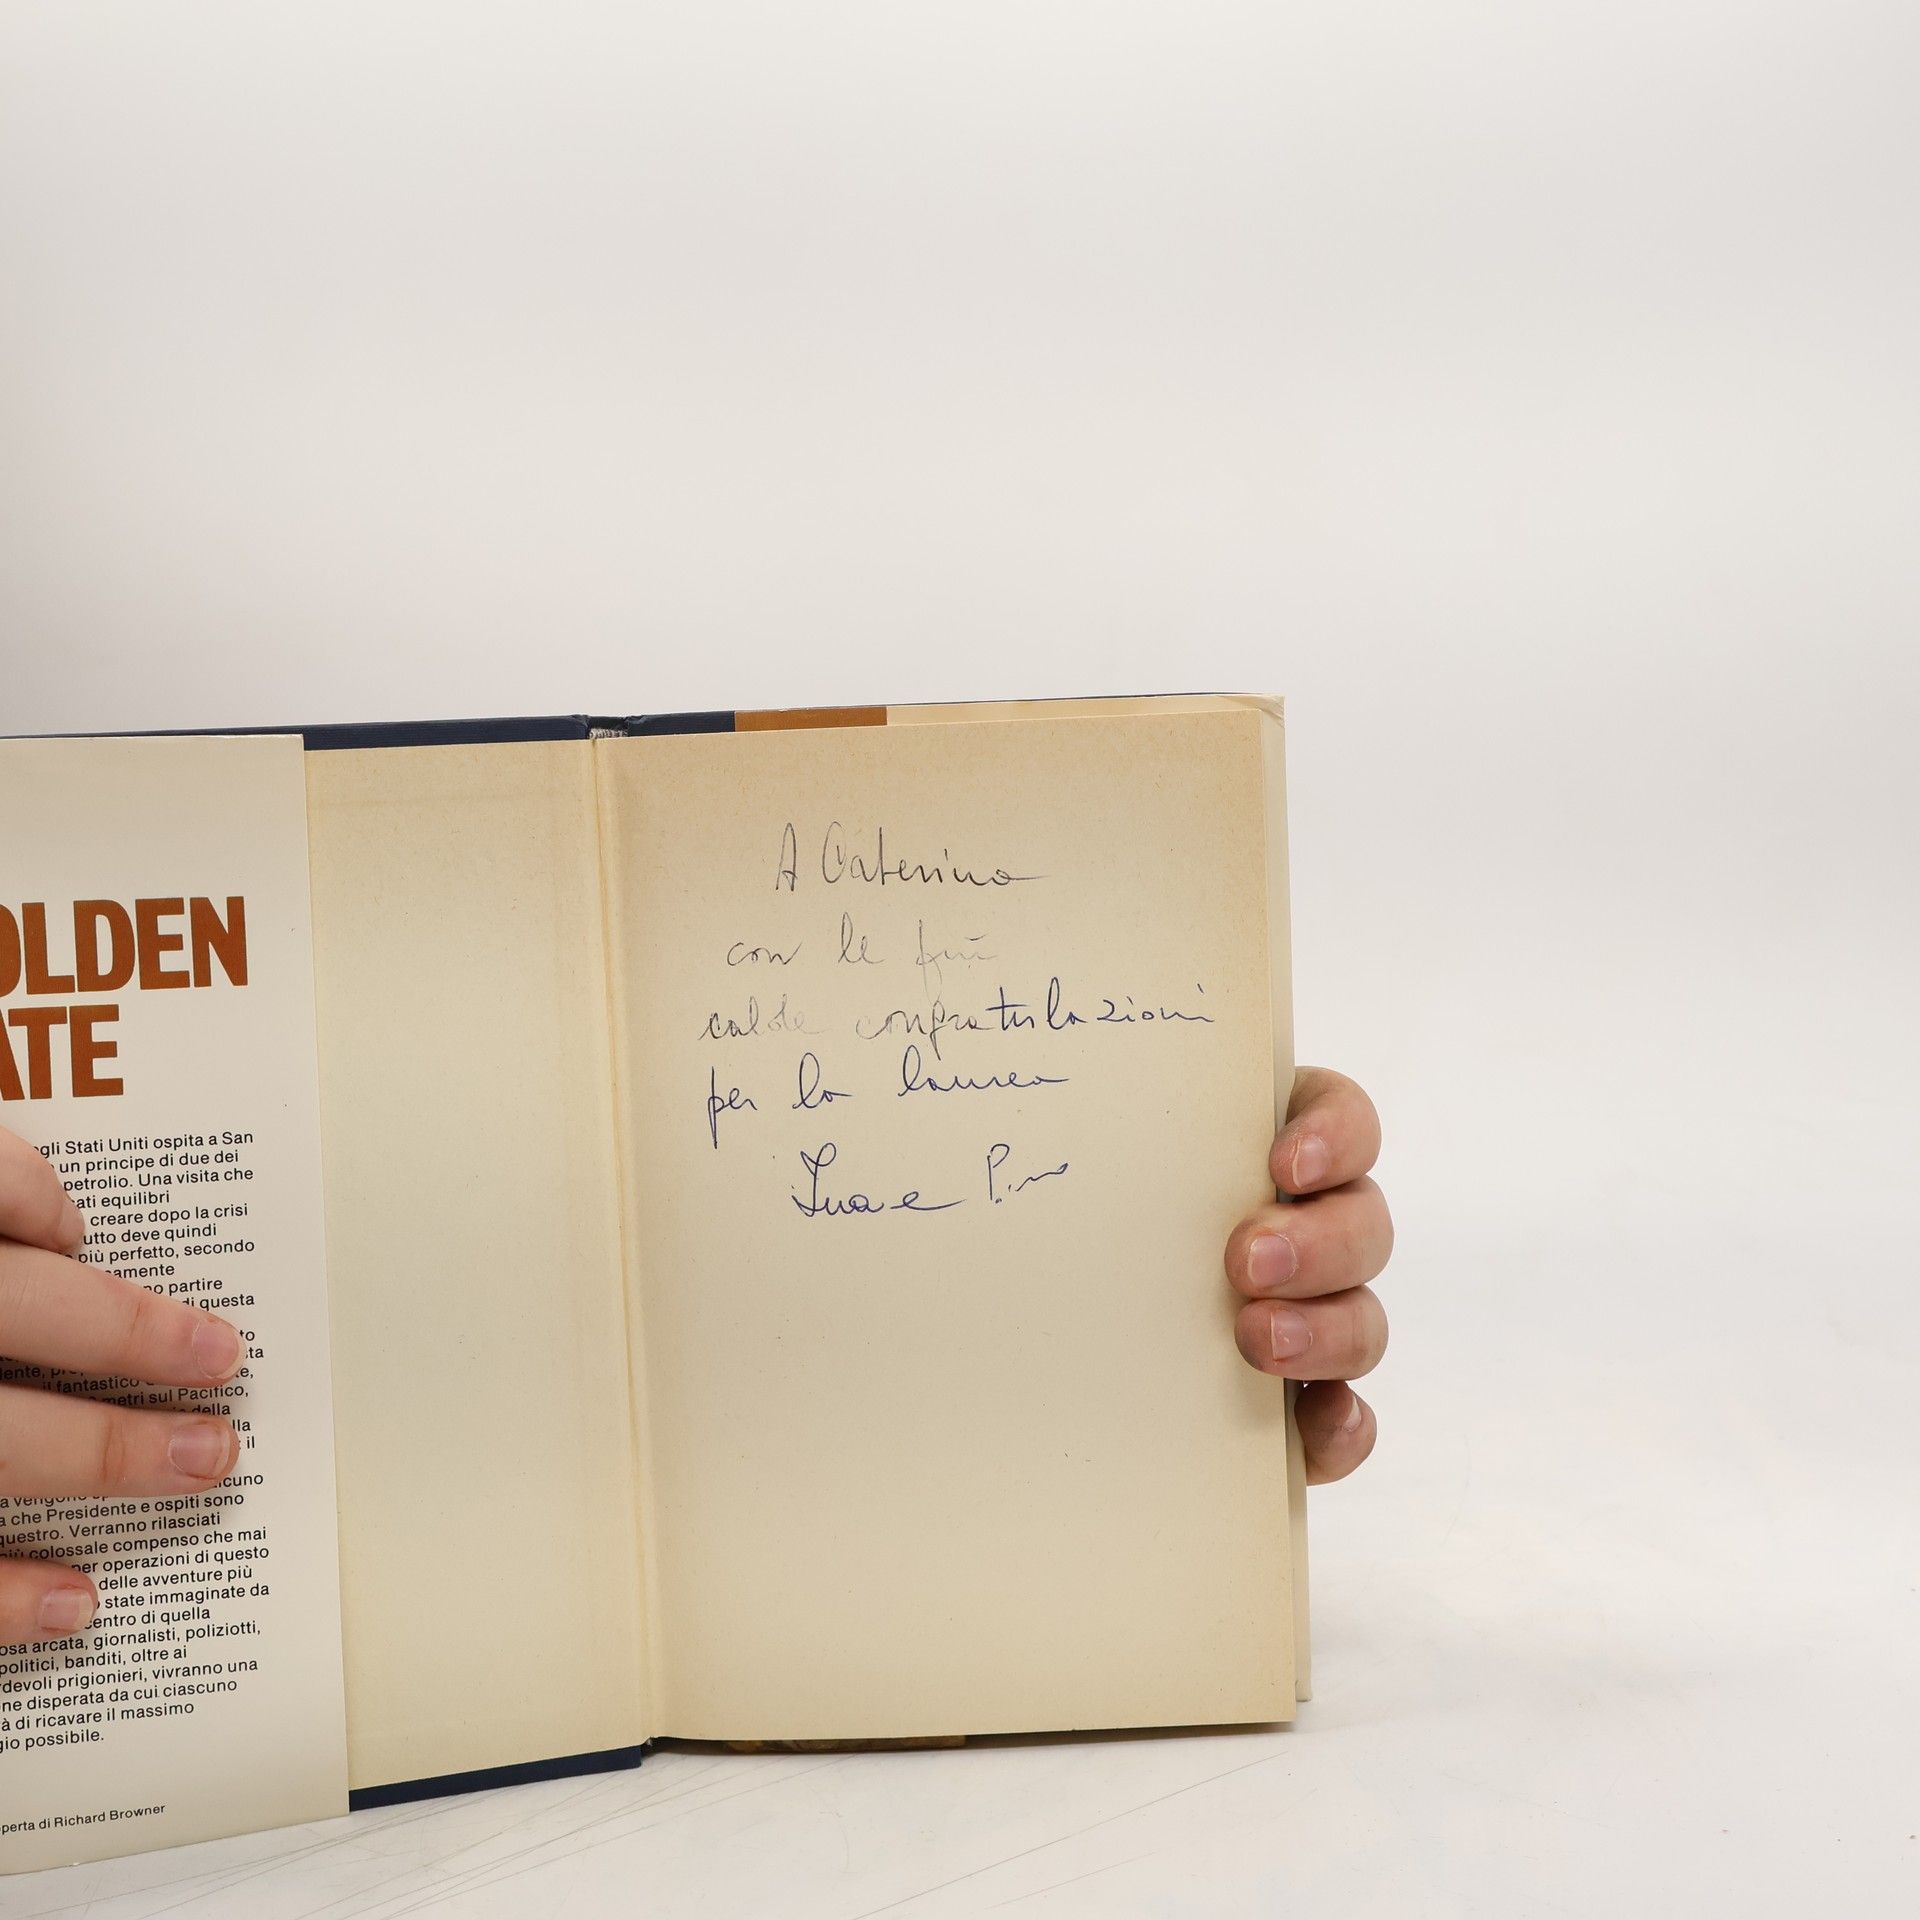 OLDEN
ATE
gli Stati Uniti ospita a San
un principe di due dei
petrolio. Una visita che
ati equilibri
creare dopo la crisi
utto deve quindi
più perfetto, secondo
amente
no partire
di questa
to
sta
ente,
te,
il fantastico
metri sul Pacifico,
della
lla
il
cuno
a vengono
a che Presidente e ospiti sono
questro. Verranno rilasciati
più colossale compenso che mai
per operazioni di questo
delle avventure più
state immaginate da
centro di quella
osa arcata, giornalisti, poliziotti,
politici, banditi, oltre ai
devoli prigionieri, vivranno una
ne disperata da cui ciascuno
à di ricavare il massimo
gio possibile.
perta di Richard Browner
A Caterina
con le più
calde congratulazioni
per la laurea
e Pino